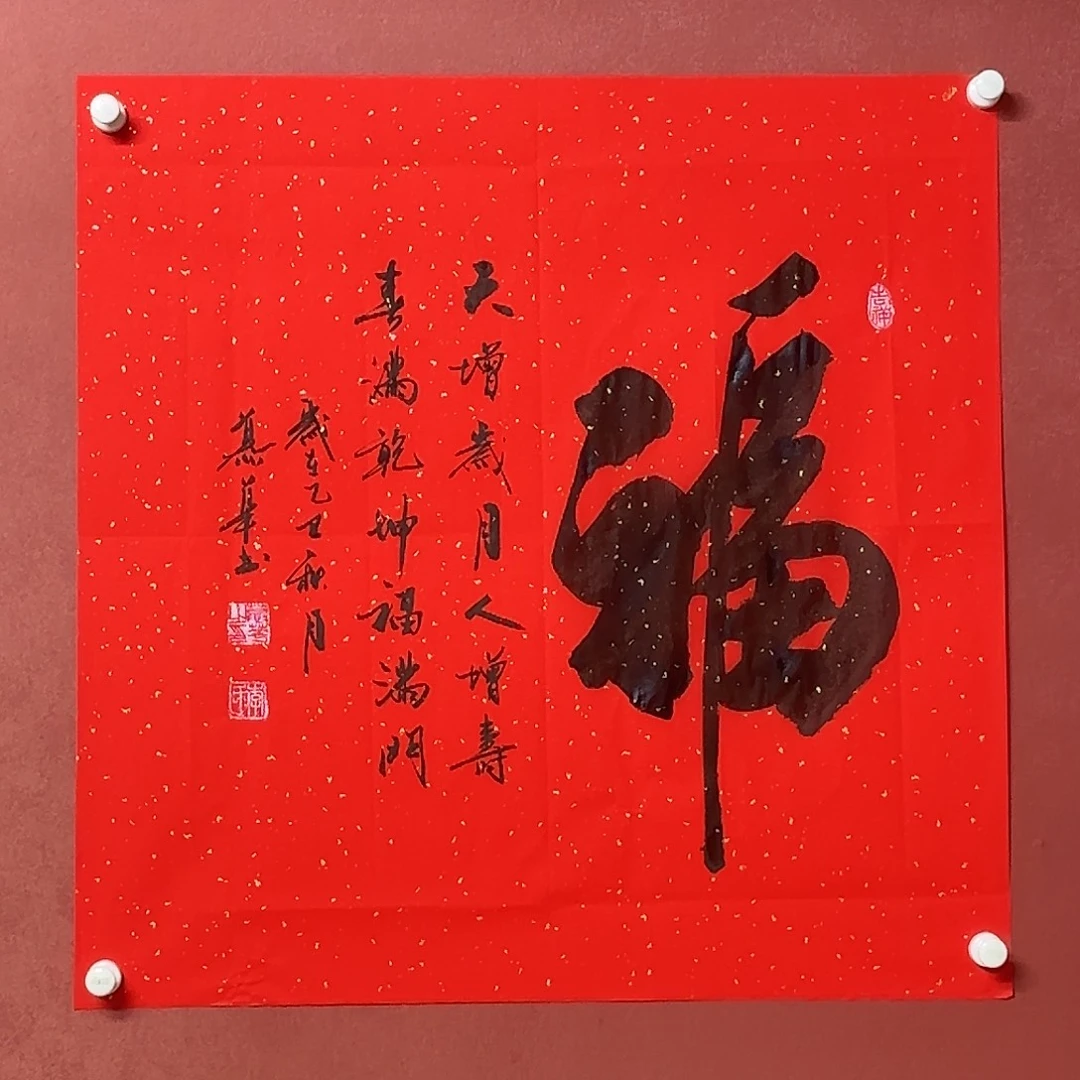 福
天增歲月人增壽
春滿乾坤福滿門
歲在乙巳秋月
燕華书